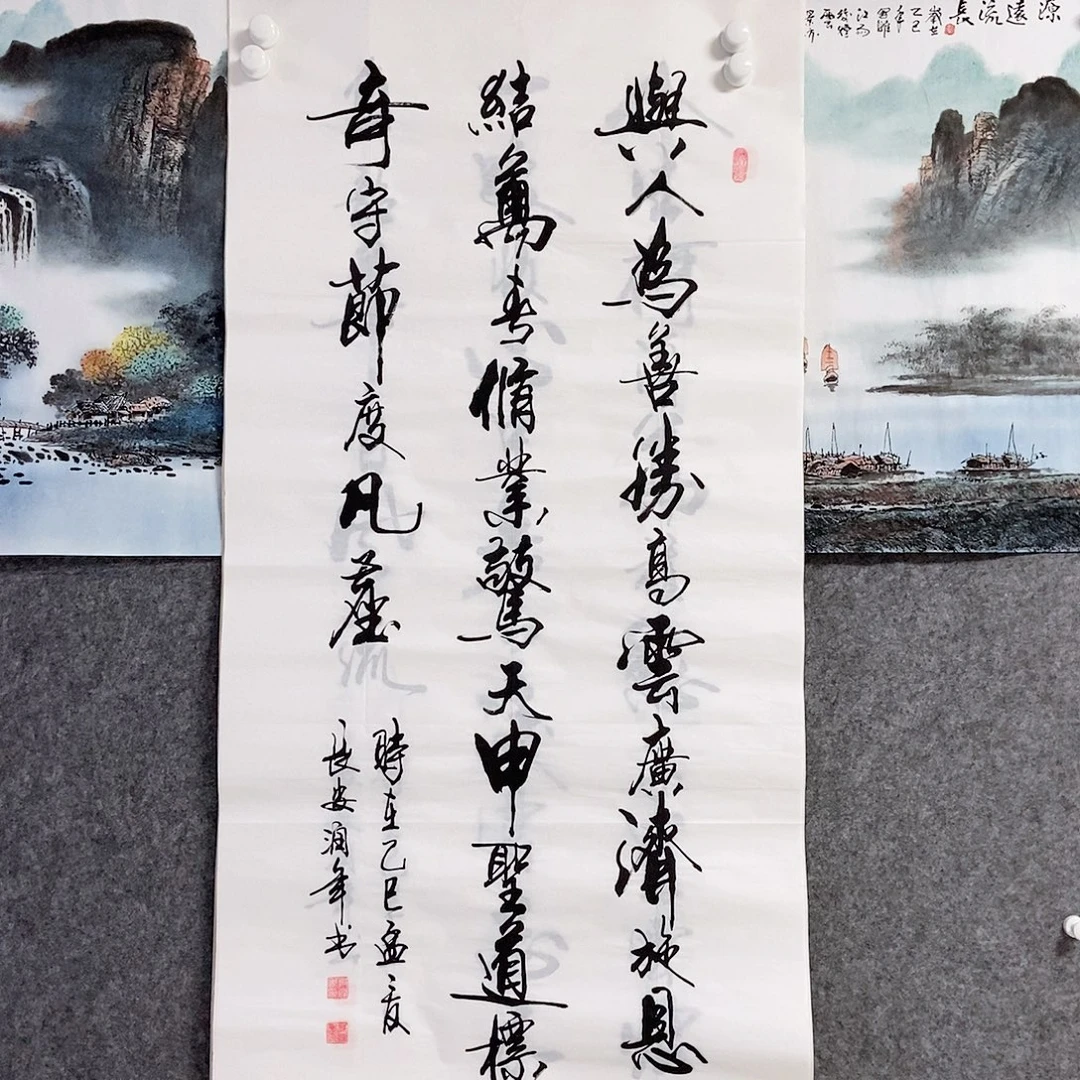 源遠流長
與人為善勝高雲廣濟施恩
結萬春脩業驚天申聖道標
奇守節度凡塵
時在乙巳孟夏
長安潤年书